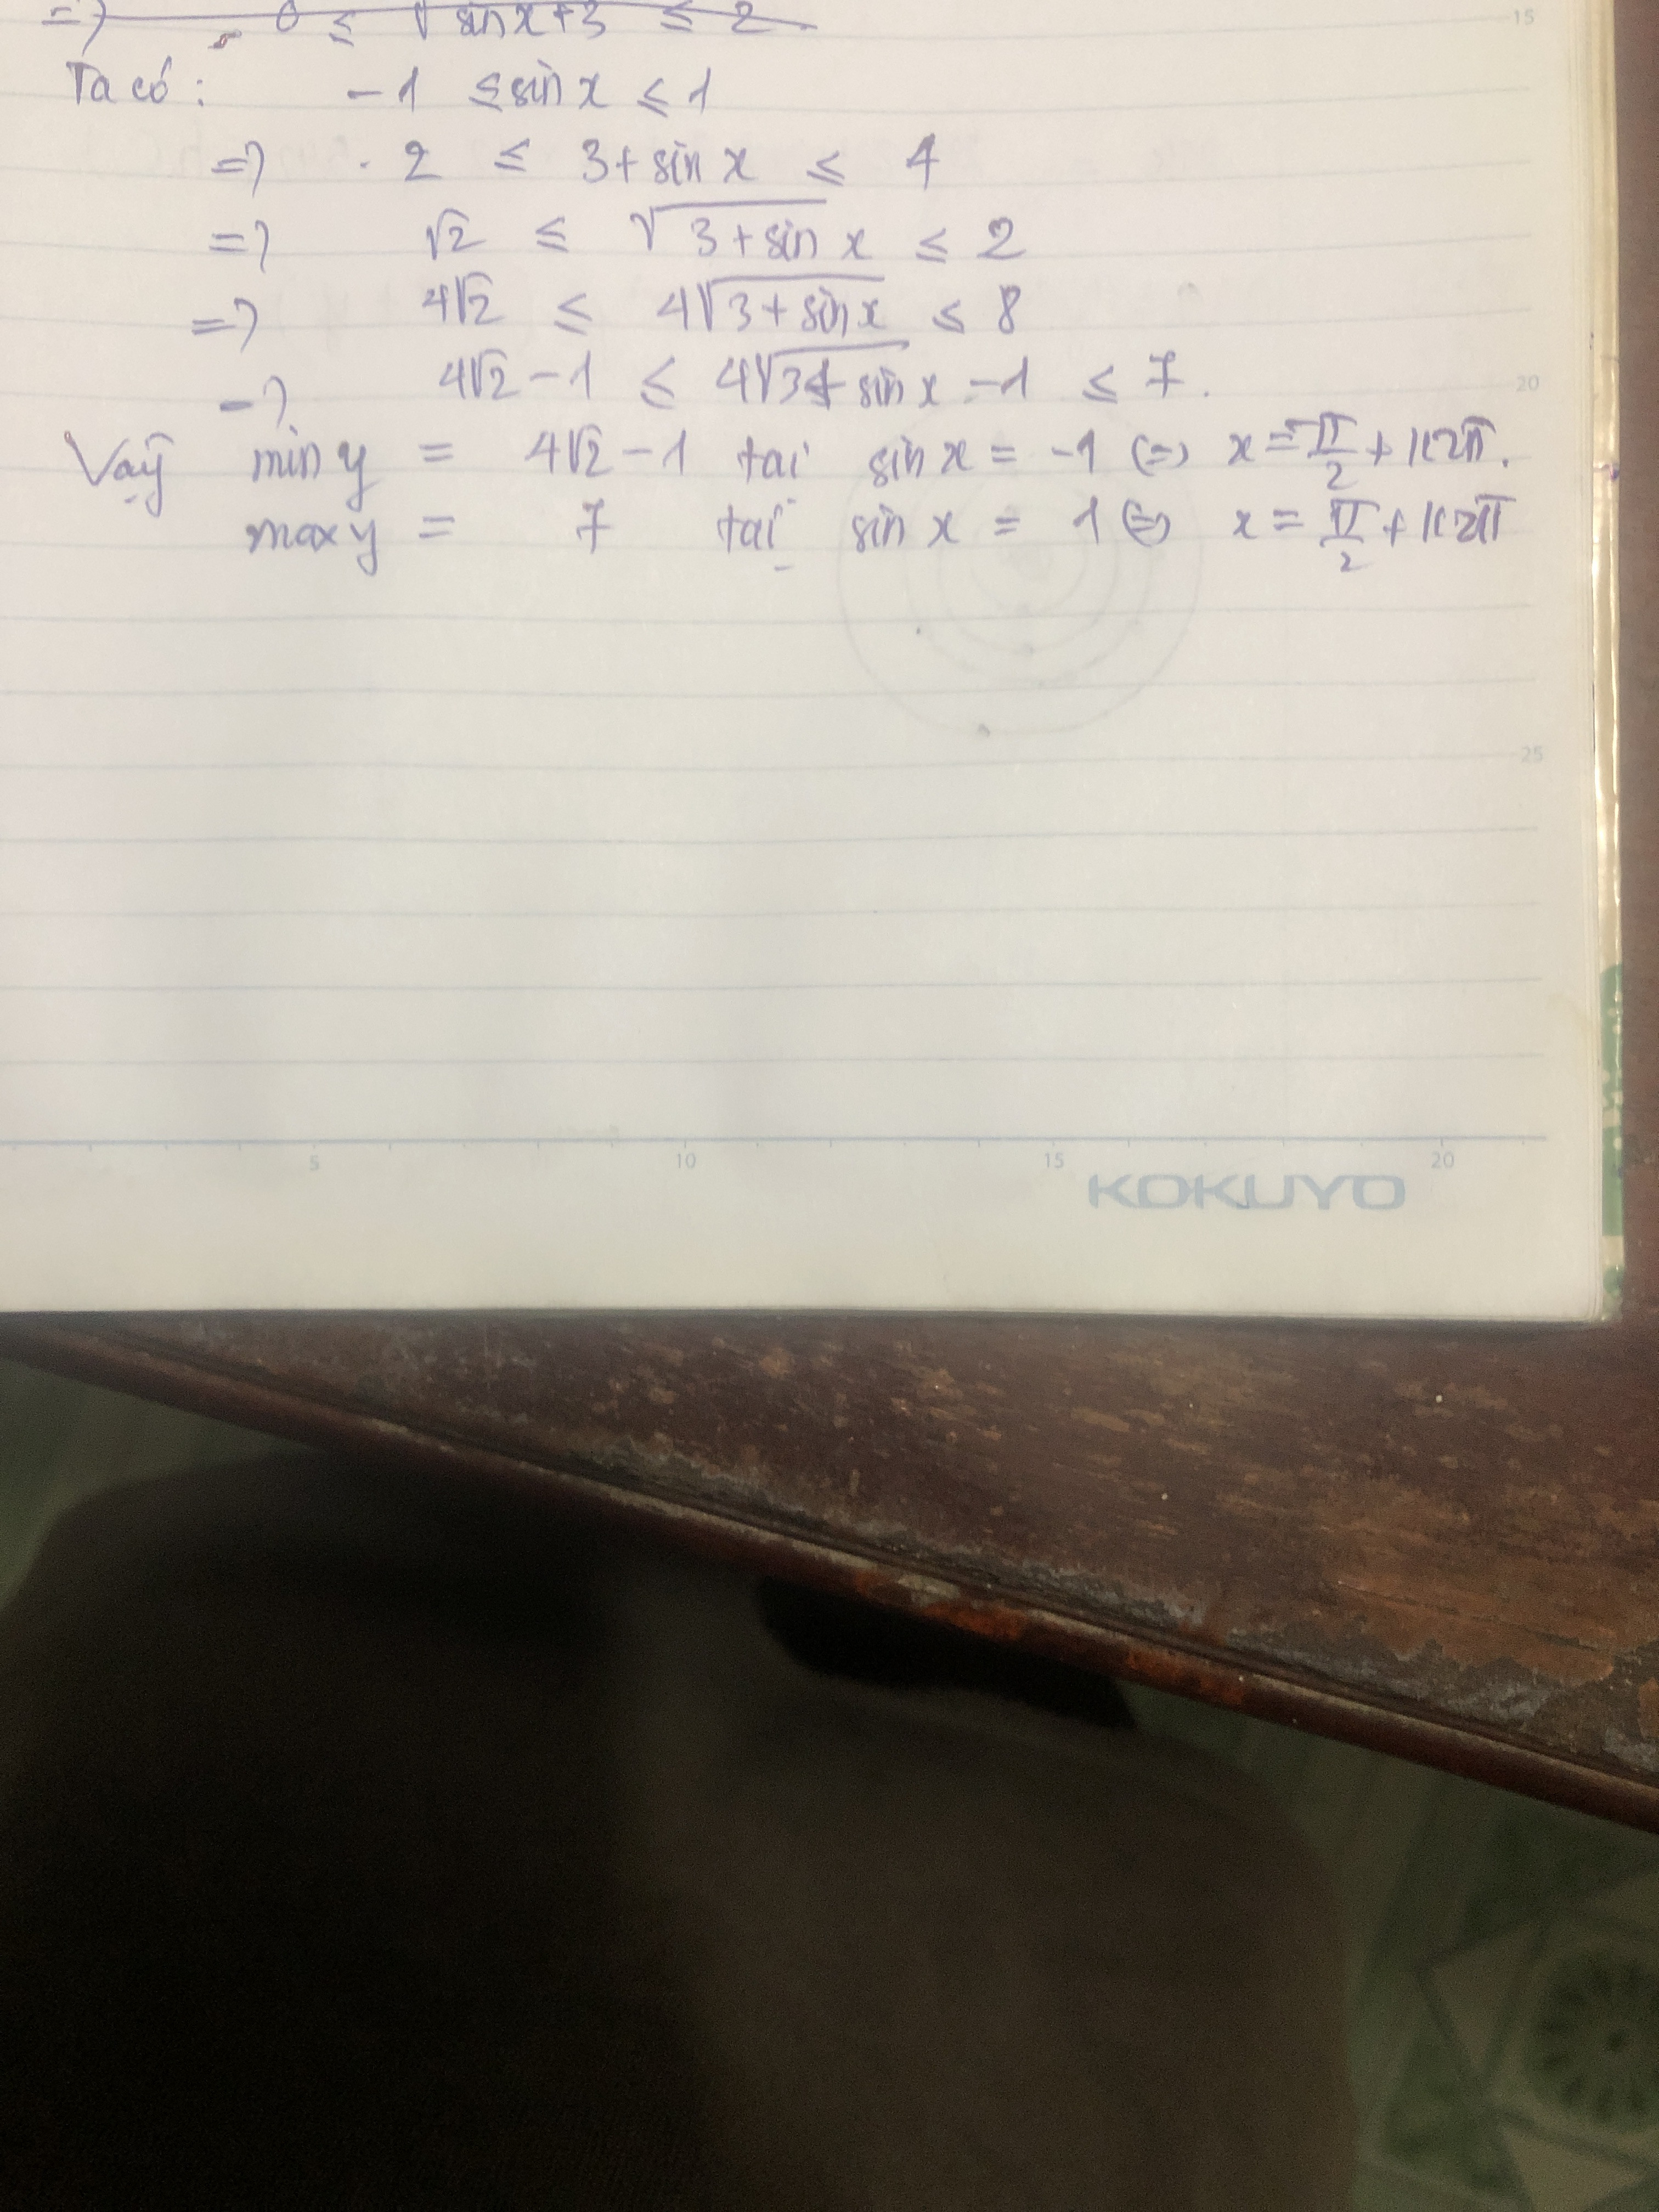 => 0 ≤ √sin x+3 ≤ 2
15
Ta có: -1 ≤ sin x ≤ 1
=> 2 ≤ 3+sin x ≤ 4
=> √2 ≤ √3+sin x ≤ 2
=> 4√2 ≤ 4√3+sin x ≤ 8
=> 4√2-1 ≤ 4√3+sin x -1 ≤ 7.
20
Vậy min y = 4√2-1 tại sin x = -1 (=) x = -π/2 + k2π.
max y = 7 tại sin x = 1 (=) x = π/2 + k2π
25
5 10 15 20
KOKUYO